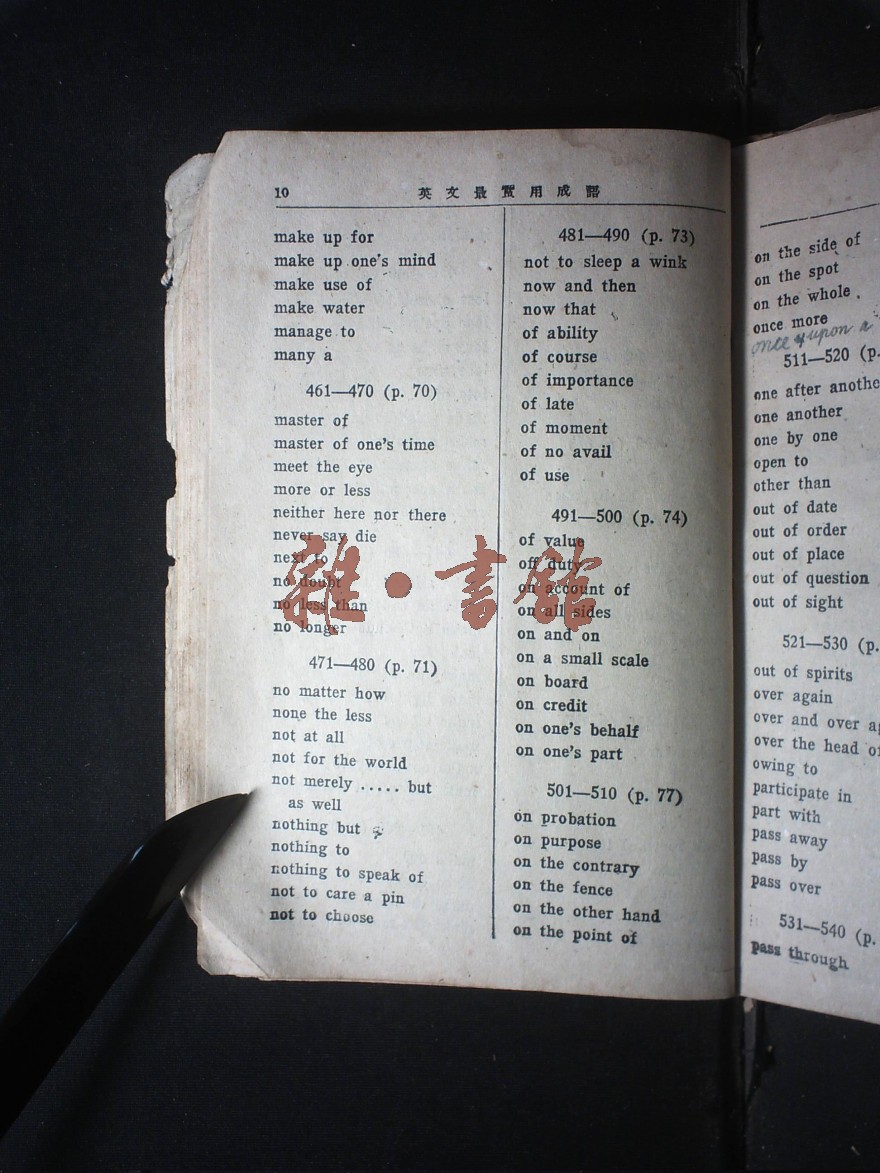 10
英文最實用成語
make up for
make up one's mind
make use of
make water
manage to
many a
461—470 (p. 70)
master of
master of one's time
meet the eye
more or less
neither here nor there
never say die
next to
no doubt
no less than
no longer
471—480 (p. 71)
no matter how
none the less
not at all
not for the world
not merely ..... but
as well
nothing but
nothing to
nothing to speak of
not to care a pin
not to choose
481—490 (p. 73)
not to sleep a wink
now and then
now that
of ability
of course
of importance
of late
of moment
of no avail
of use
491—500 (p. 74)
of value
off duty
on account of
on all sides
on and on
on a small scale
on board
on credit
on one's behalf
on one's part
501—510 (p. 77)
on probation
on purpose
on the contrary
on the fence
on the other hand
on the point of
雜·書館
on the side of
on the spot
on the whole
once more
once upon a
511—520 (p.
one after anothe
one another
one by one
open to
other than
out of date
out of order
out of place
out of question
out of sight
521—530 (p.
out of spirits
over again
over and over ag
over the head of
owing to
participate in
part with
pass away
pass by
pass over
531—540 (p.
pass through